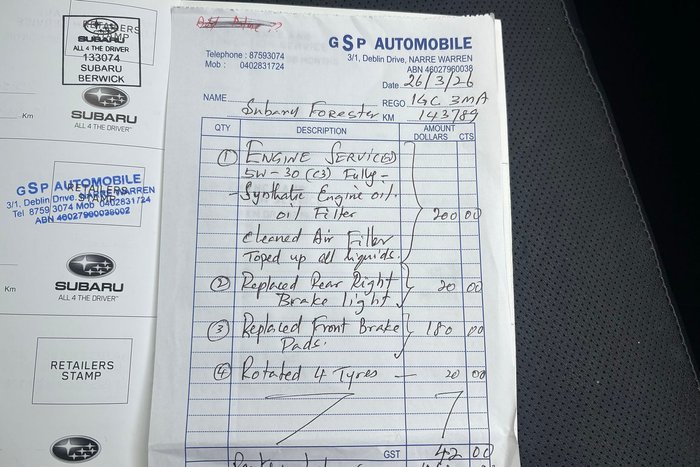 RETAILERS
STAMP
SUBARU
ALL 4 THE DRIVER
133074
SUBARU
BERWICK
SUBARU
ALL 4 THE DRIVER™
Km
GSP AUTOMOBILE
3/1, Deblin Drive, NARRE WARREN
Tel 8759 3074 Mob 0402831724
ABN 46027960038002
RETAILERS
STAMP
Km
SUBARU
ALL 4 THE DRIVER™
RETAILERS
STAMP
SUBARU
GSP AUTOMOBILE
Telephone : 87593074
Mob : 0402831724
3/1, Deblin Drive, NARRE WARREN
ABN 46027960038
Date 26/3/26
NAME Subaru Forester
REGO 1GC 3MA
KM 143789
QTY DESCRIPTION AMOUNT
DOLLARS CTS
① ENGINE SERVICED
5W-30 (C3) Fully-
-Synthetic Engine oil.
oil Filter 200 00
Cleaned Air Filter
Toped up all liquids.
② Replaced Rear Right 20 00
Brake light
③ Replaced Front Brake 180 00
Pads.
④ Rotated 4 Tyres — 20 00
GST 42 00